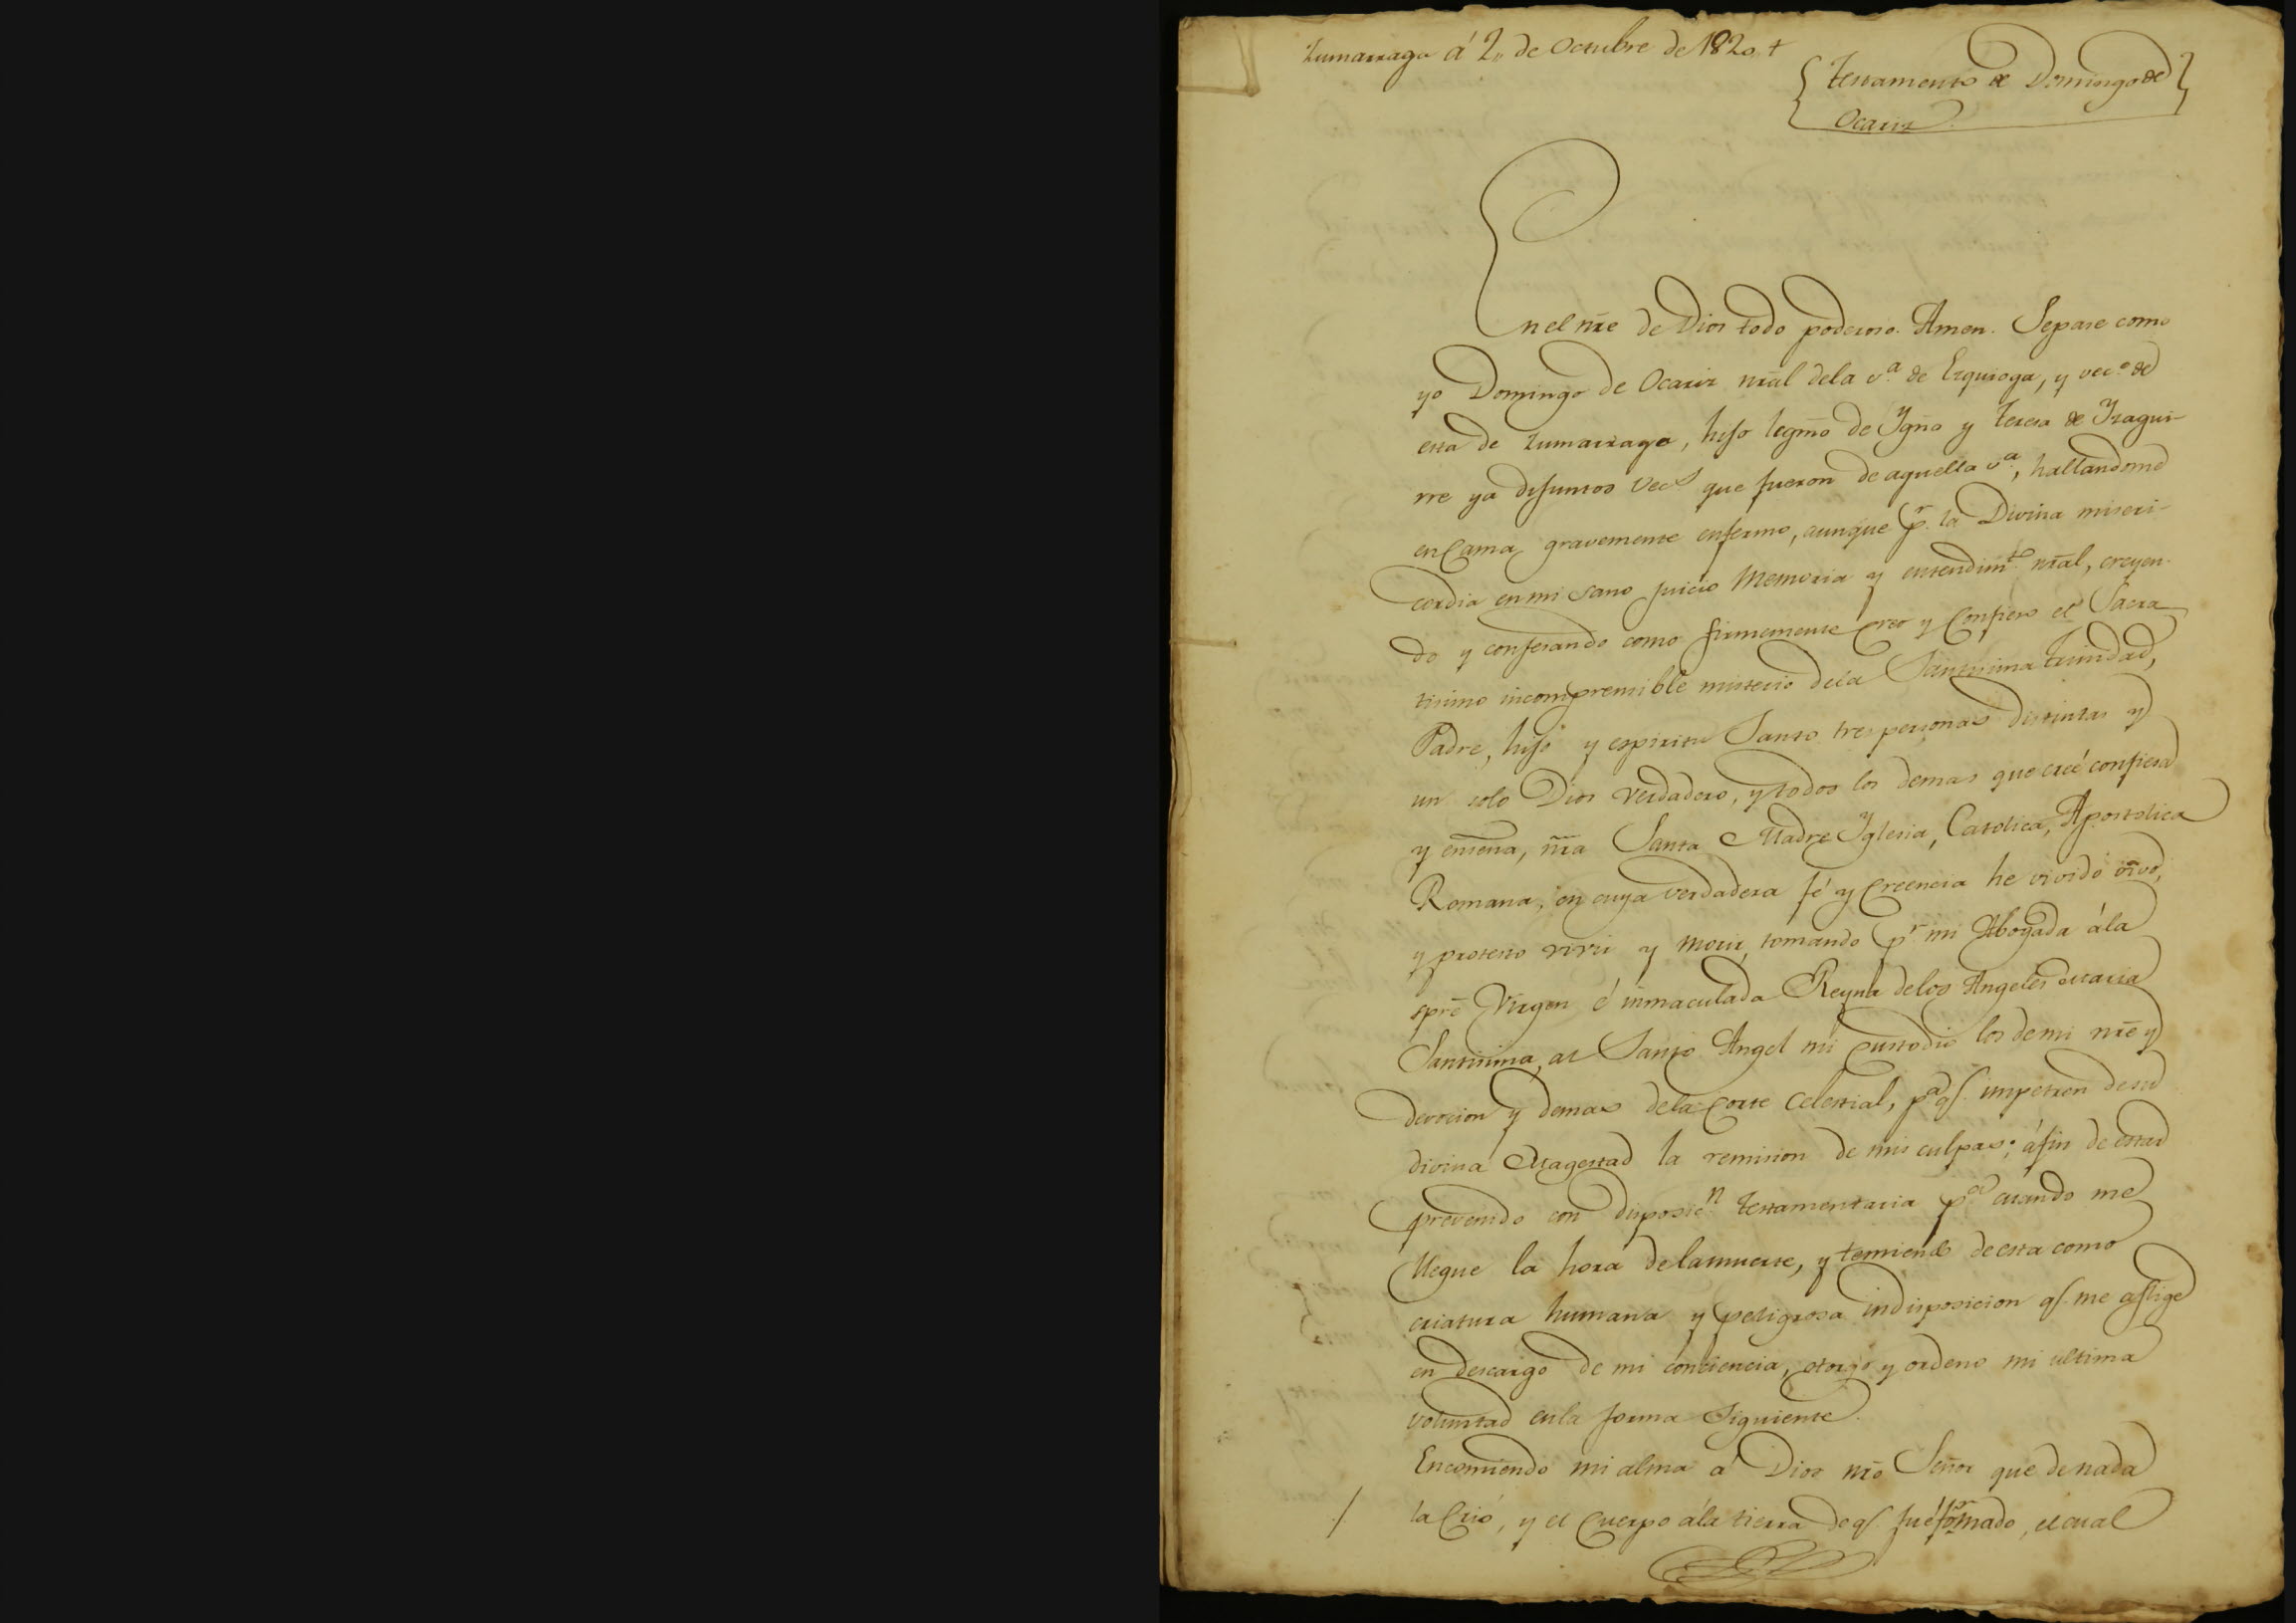 Zumarraga á 2,, de Octubre de 1820 +
Testamento de Domingo de
Ocariz
En el nr̃e de Dios todo poderoso. Amen. Sepase como
yo Domingo de Ocariz nr̃al dela v.ª de Ezquioga, y vec.º de
esta de Zumarraga, hijo legmõ de Ygnõ y Teresa de Yzagui-
rre ya difuntos vec.s que fueron de aquella v.ª, hallandome
en Cama gravemente enfermo, aunque p.r la Divina miseri-
cordia en mi sano juicio Memoria y entendim.to nr̃al, creyen-
do y confesando como firmemente creo y Confieso el Sacra
tisimo incomprensible misterio dela Santisima trinidad,
Padre, hijo y espiritu Santo tres personas distintas y
un solo Dios verdadero, y todos los demas que creé confiesa
y enseña, nr̃a Santa Madre Yglesia, Catolica, Apostolica
Romana, en cuya verdadera fé y Creencia he vivido vivo,
y protesto vivir y morir, tomando p.r mi Abogada ála
sprẽ Virgen é inmaculada Reyna delos Angeles Maria
Santisima, al Santo Angel mi Custodio los demi nr̃e y
devocion y demas dela Corte Celestial, p.ª q.e impetren desu
divina Magestad la remision de mis culpas; áfin de estar
prevenido con disposic.n testamentaria p.ª cuando me
llegue la hora delamuerte, y temiendo de esta como
criatura humana y peligrosa indisposicion q.e me aflige
en descargo de mi conciencia, otorgo y ordeno mi ultima
voluntad enla forma Siguiente.
Encomiendo mi alma á Dios nr̃o Señor que denada
la Crió, y el Cuerpo ála tierra de q.e fué formado, el cual